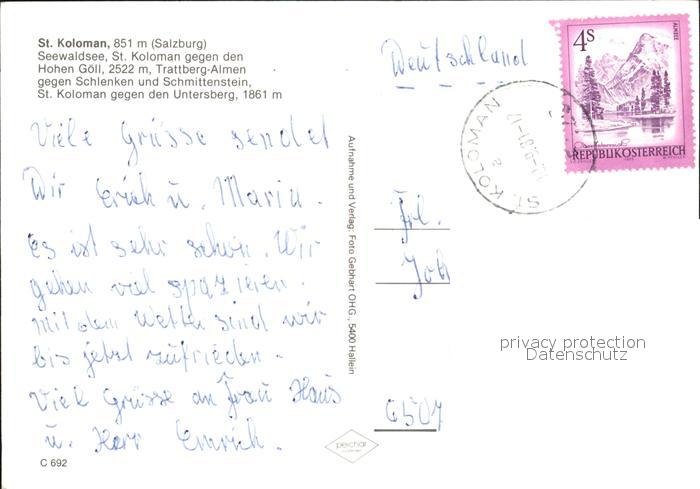 St. Koloman, 851 m (Salzburg)
Seewaldsee, St. Koloman gegen den
Hohen Göll, 2522 m, Trattberg-Almen
gegen Schlenken und Schmittenstein,
St. Koloman gegen den Untersberg, 1861 m
Viele Grüsse sendet
Wir Erich u. Maria.
Es ist sehr schön. Wir
gehen viel spazieren.
Mit dem Wetter sind wir
bis jetzt zufrieden.
Viele Grüsse an Frau Haus
u. Herr Emrich.
C 692
Aufnahme und Verlag: Foto Gebhart OHG., 5400 Hallein
Deutschland
4S
ALMSEE
REPUBLIK ÖSTERREICH
ST. KOLOMAN
Frl.
Joh
privacy protection
Datenschutz
6507